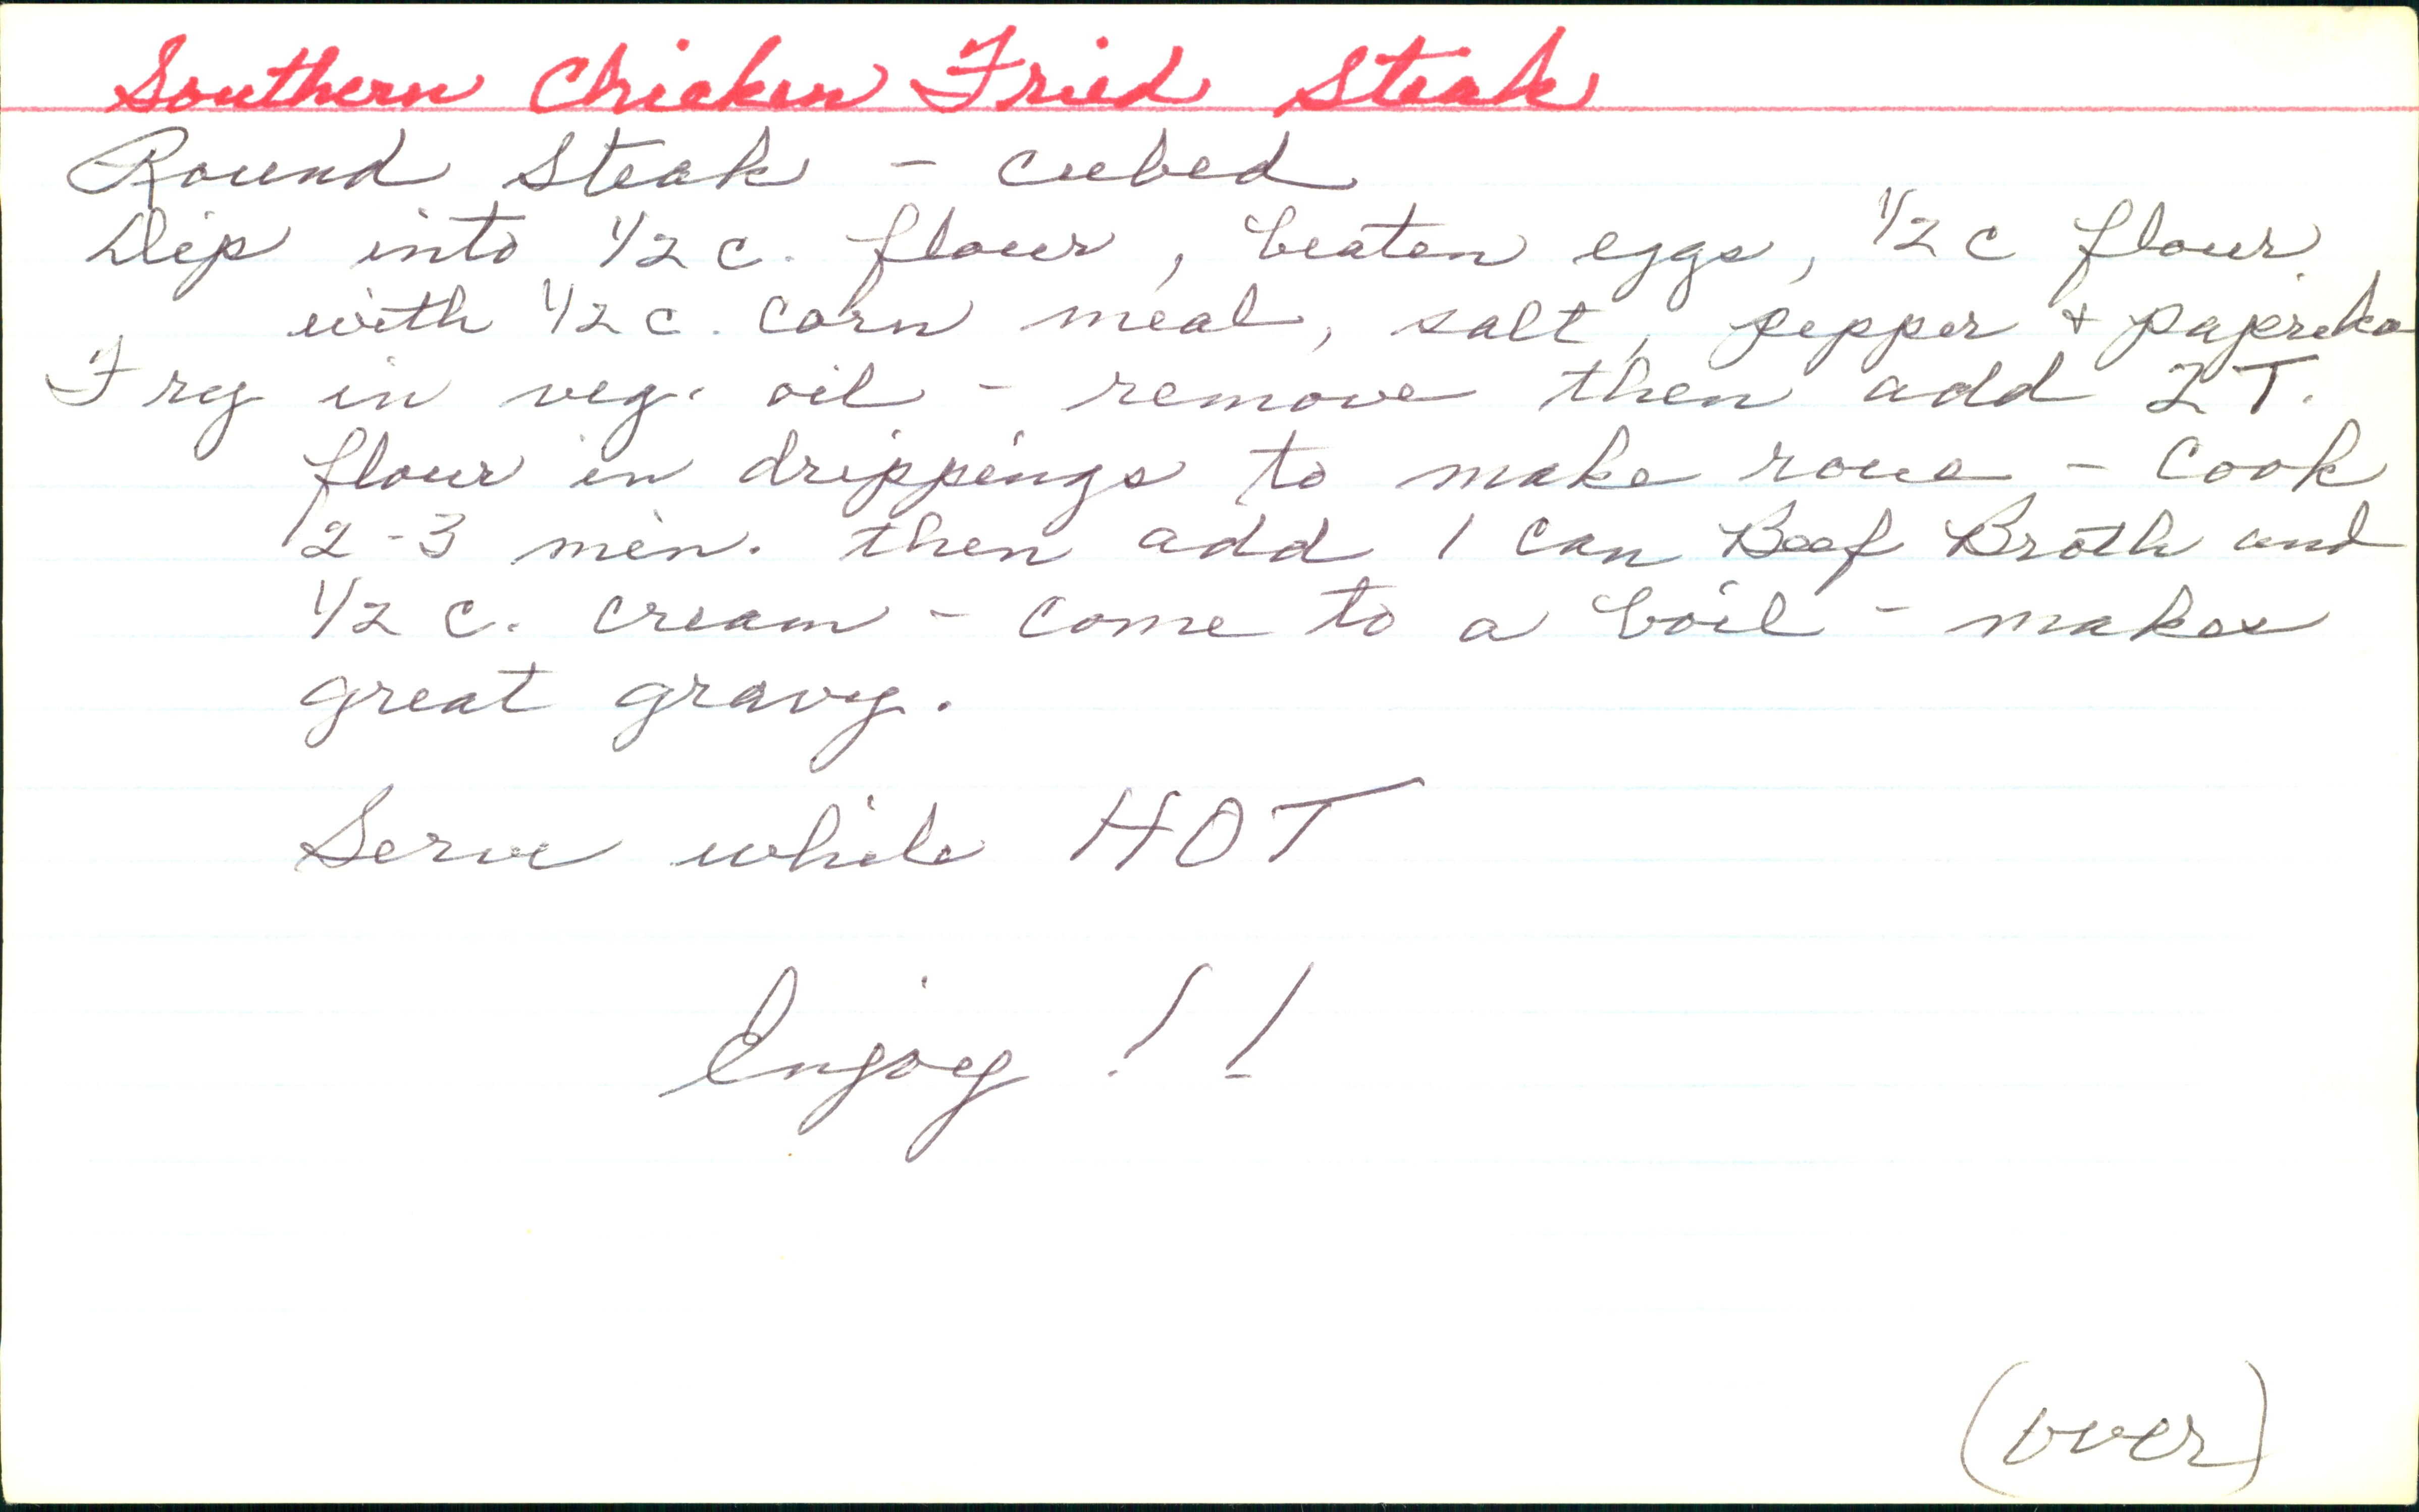 Southern Chicken Fried Steak
Round Steak - cubed
Dip into 1/2 c. flour, beaten eggs, 1/2 c flour
with 1/2 c. corn meal, salt, pepper + paprika
Fry in veg. oil - remove then add 2 T.
flour in drippings to make roue - cook
2-3 min. then add 1 can Beef Broth and
1/2 c. cream - come to a boil - makes
great gravy.
Serve while HOT
Enjoy !!
(over)